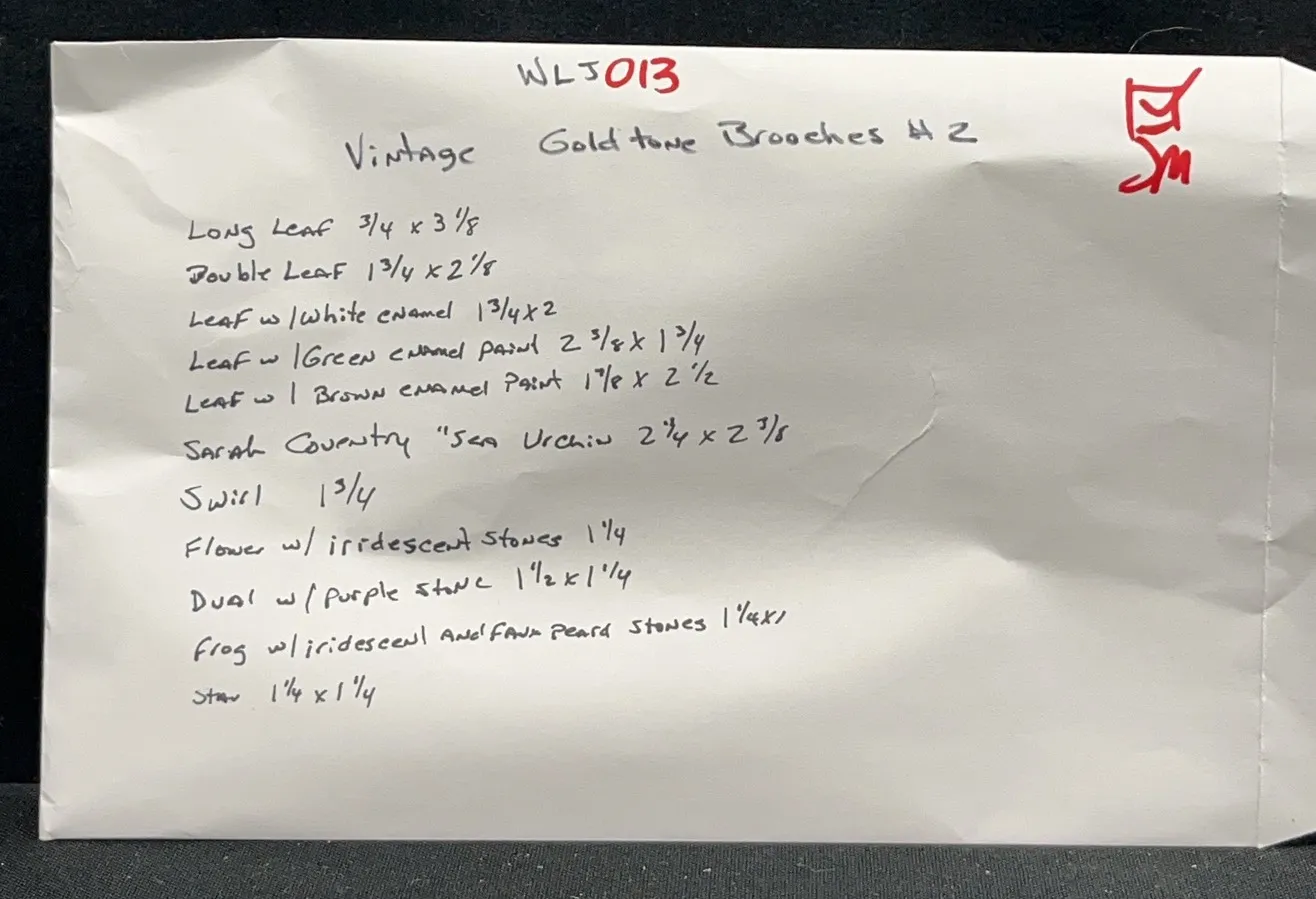 WLJ013
Vintage Goldtone Brooches # 2
Long Leaf 3/4 x 3 1/8
Double Leaf 1 3/4 x 2 1/8
Leaf w/white enamel 1 3/4 x 2
Leaf w/Green enamel paint 2 3/8 x 1 3/4
Leaf w/ Brown enamel Paint 1 7/8 x 2 1/2
Sarah Coventry "Sea Urchin 2 1/4 x 2 3/8
Swirl 1 3/4
Flower w/ iridescent stones 1 1/4
Dual w/ purple stone 1 1/2 x 1 1/4
frog w/iridescent And Faux Peard stones 1 1/4 x 1
Star 1 1/4 x 1 1/4
JM